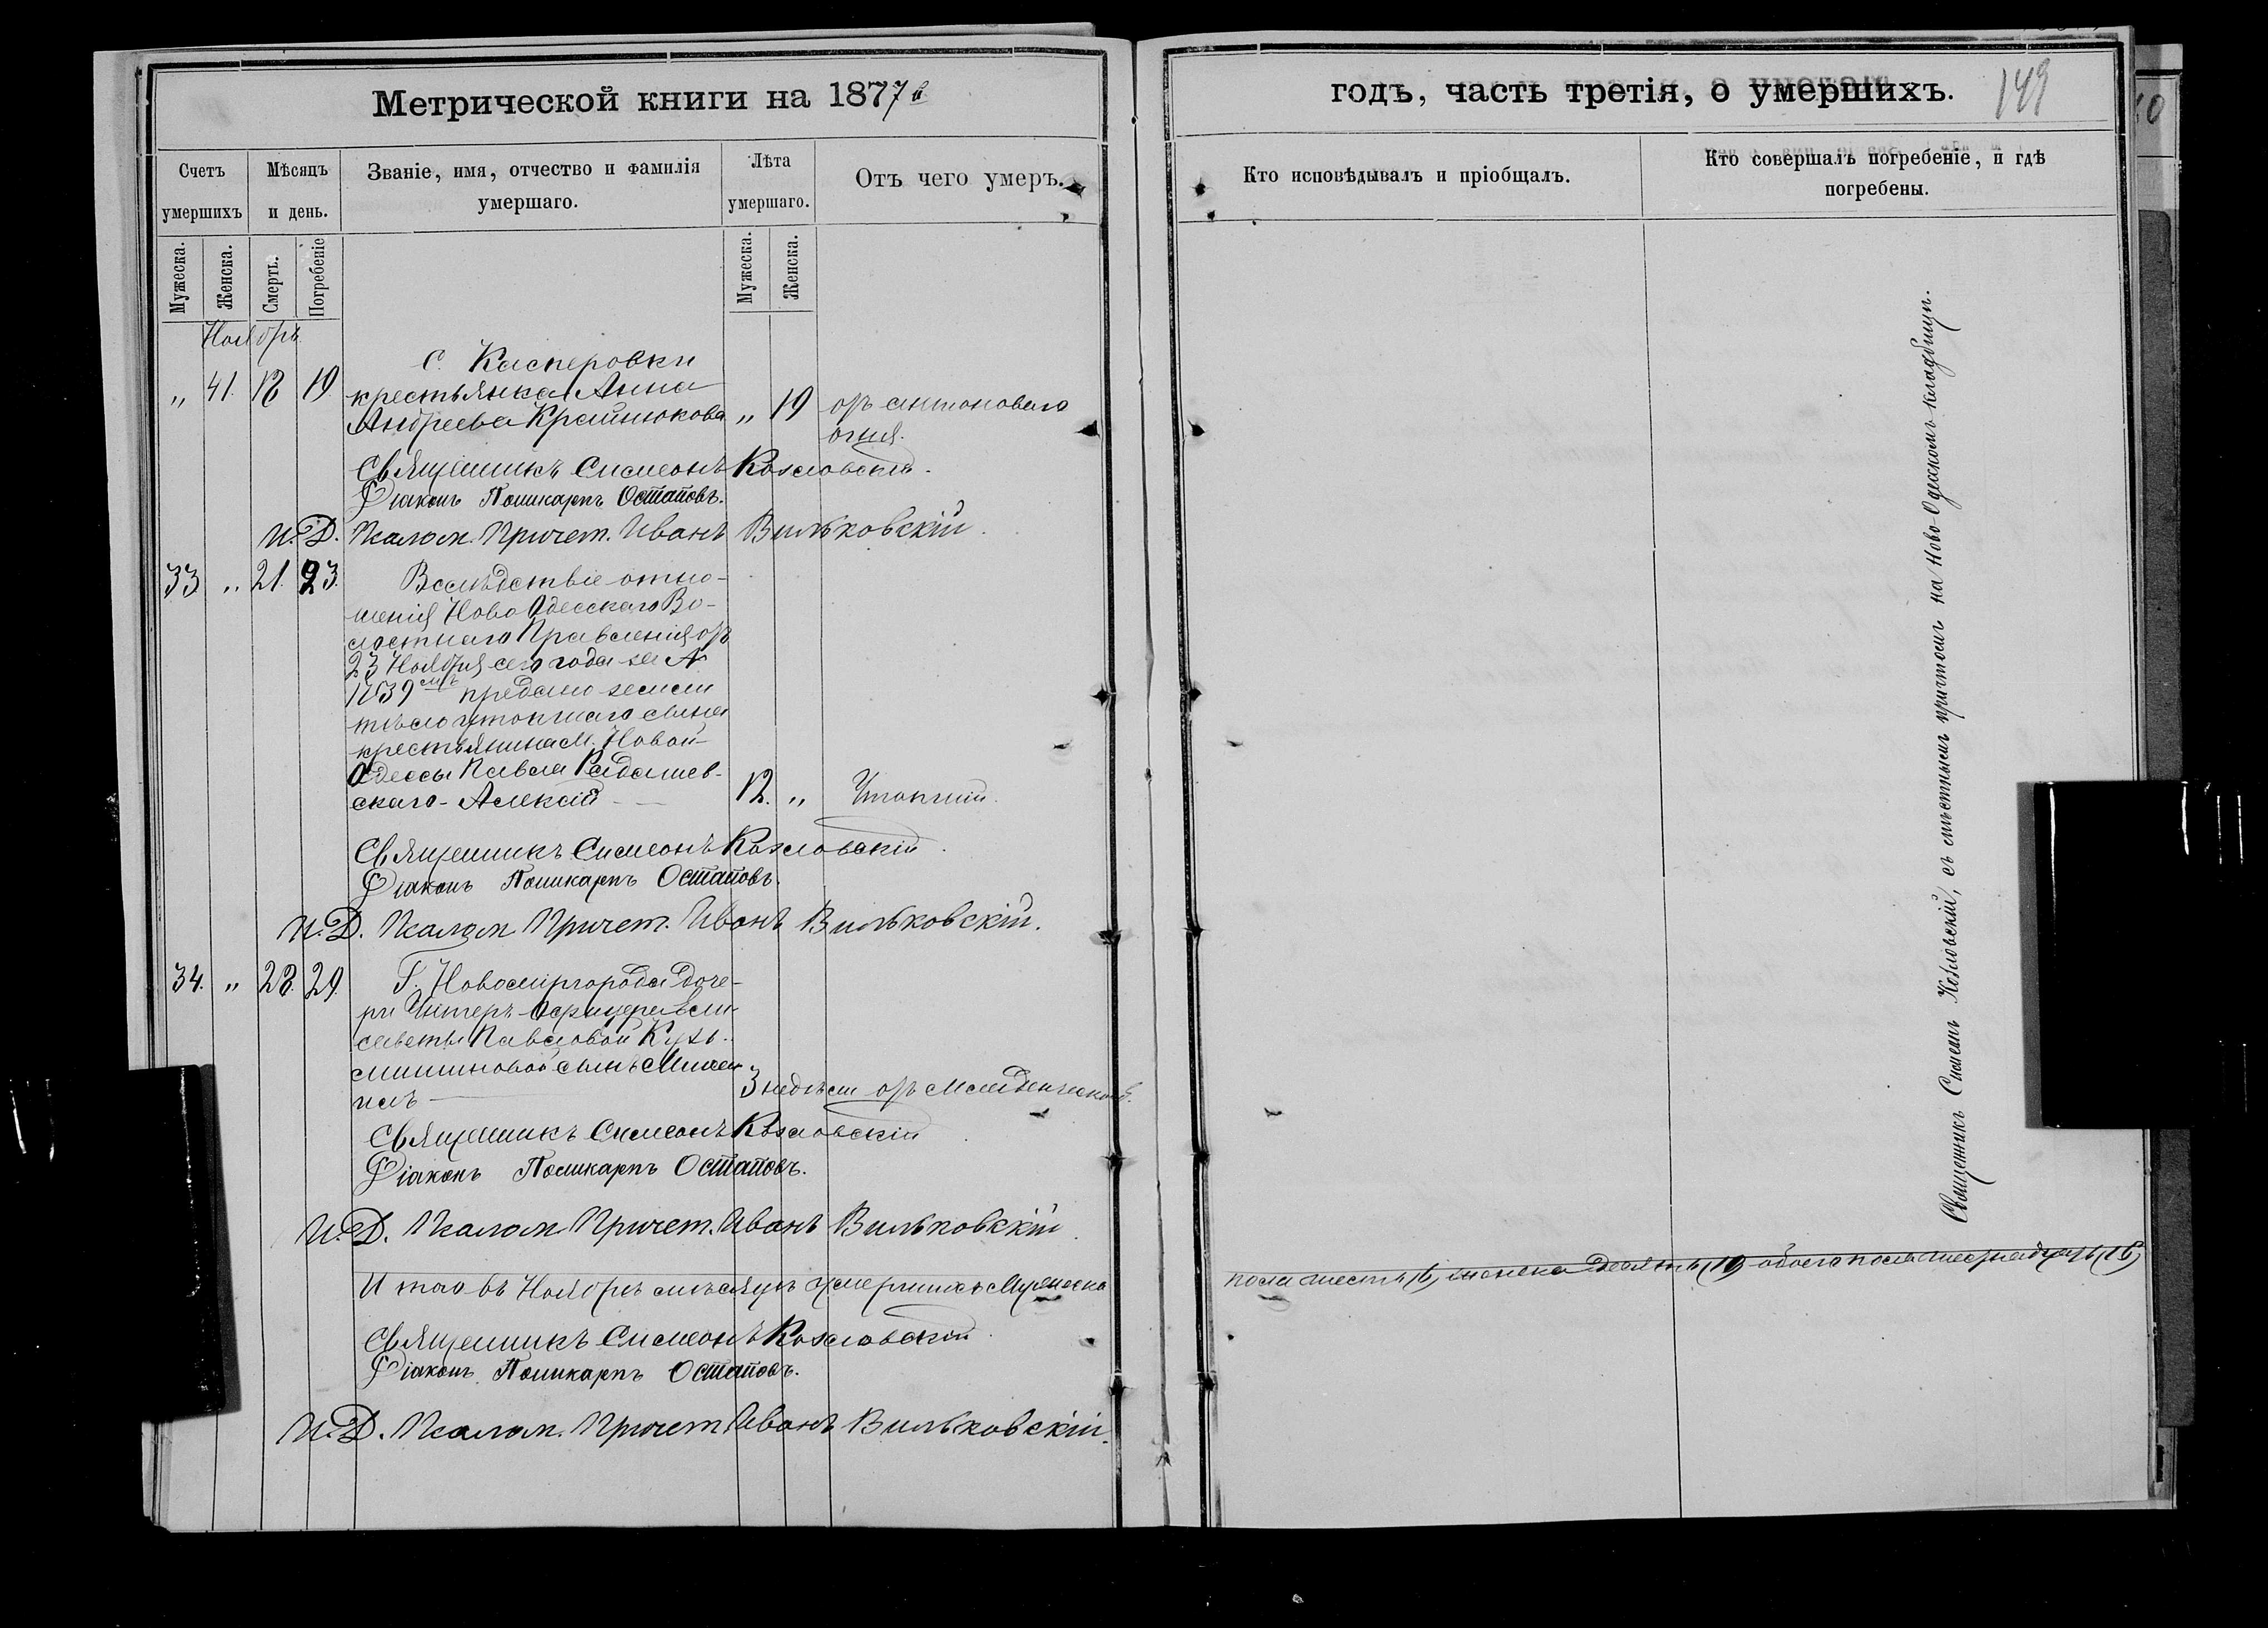 Метрической книги на 1877 й
Счетъ умершихъ
Мѣсяцъ и день.
Званіе, имя, отчество и фамилія умершаго.
Лѣта умершаго.
Отъ чего умеръ.
Мужеска. Женска. Смерть. Погребеніе
Мужеска. Женска.
Ноябрь
С. Касперовки
„ 41. 18 19 крестьянка Анна
Андреева Крайнюкова „ 19 отъ антоноваго
огня.
Священникъ Симеонъ Козловскій.
Діаконъ Поликарпъ Остаповъ.
И. Д. Псалом. Причет. Иванъ Вильковскій.
33 „ 21. 23. Вслѣдствіе отно-
шенія Ново Одесскаго Во-
лостнаго Правленія отъ
23 Ноября сего года за №
1839 смъ предано земли
тѣло утопшаго сына
крестьянина М. Новой-
Одессы Павла Радашев-
скаго - Алексій 12. „ Утопшій.
Священникъ Симеонъ Козловскій.
Діаконъ Поликарпъ Остаповъ.
И. Д. Псалом Причет. Иванъ Вильковскій.
34. „ 28. 29. Г. Новомиргорода доче-
ри Унтеръ-Офицера Ели-
саветы Павловой Кузь-
миниковой сынъ Миха-
илъ 3 недѣли отъ младенческой.
Священникъ Симеонъ Козловскій
Діаконъ Поликарпъ Остаповъ.
И. Д. Псалом Причет. Иванъ Вильковскій.
Итого въ Ноябрѣ мѣсяцѣ умершихъ Мужеска
Священникъ Симеонъ Козловскій.
Діаконъ Поликарпъ Остаповъ.
И. Д. Псалом. Причет. Иванъ Вильковскій.
годъ, часть третія, о умершихъ.
149
Кто исповѣдывалъ и пріобщалъ.
Кто совершалъ погребеніе, и гдѣ погребены.
Священникъ Симеонъ Козловскій, съ мѣстнымъ причтомъ на Ново-Одесскомъ кладбищѣ.
пола шесть (6) женска десять (10) обоего пола шестнадцать (16)